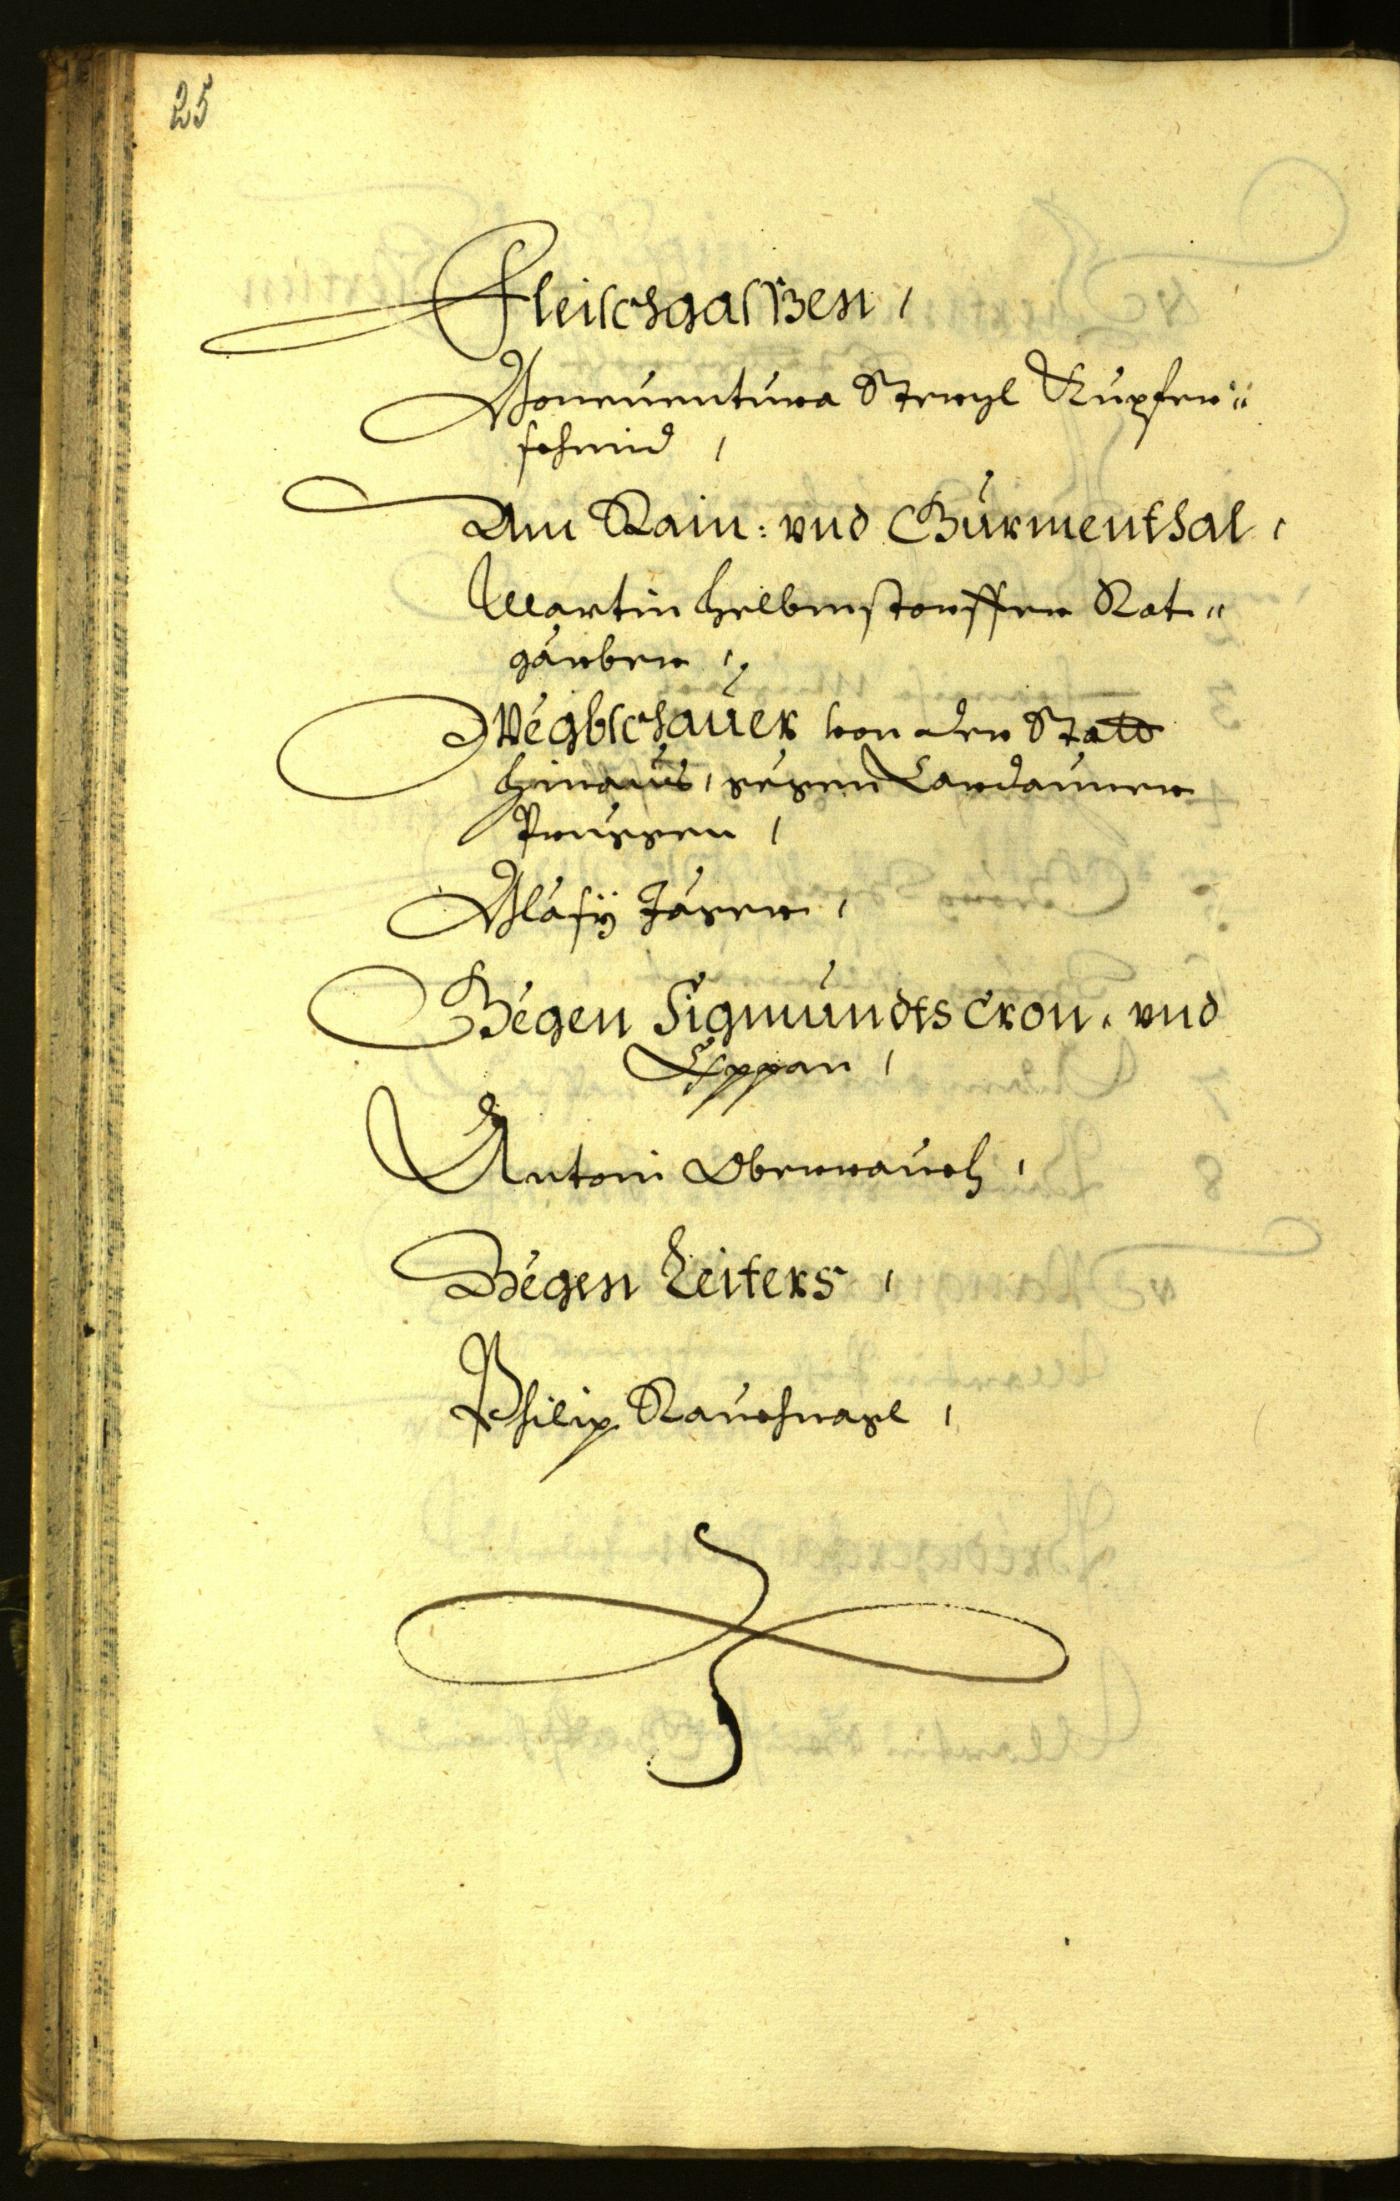 25
Fleischgassen,
Bonauentura Stengl Kupfer=
schmid,
Am Rain: vnd Gurmenthal,
Martin Helbmstorffer Rot=
gärber,
Wegbschauer von der Statt
hinaus, gegen Landauner
Pruggen,
Bläsy Jäger,
Gegen Sigmundts Cron. vnd
Eppan,
Antoni Oberrauch,
Gegen Leifers,
Philip Rauchnagl,